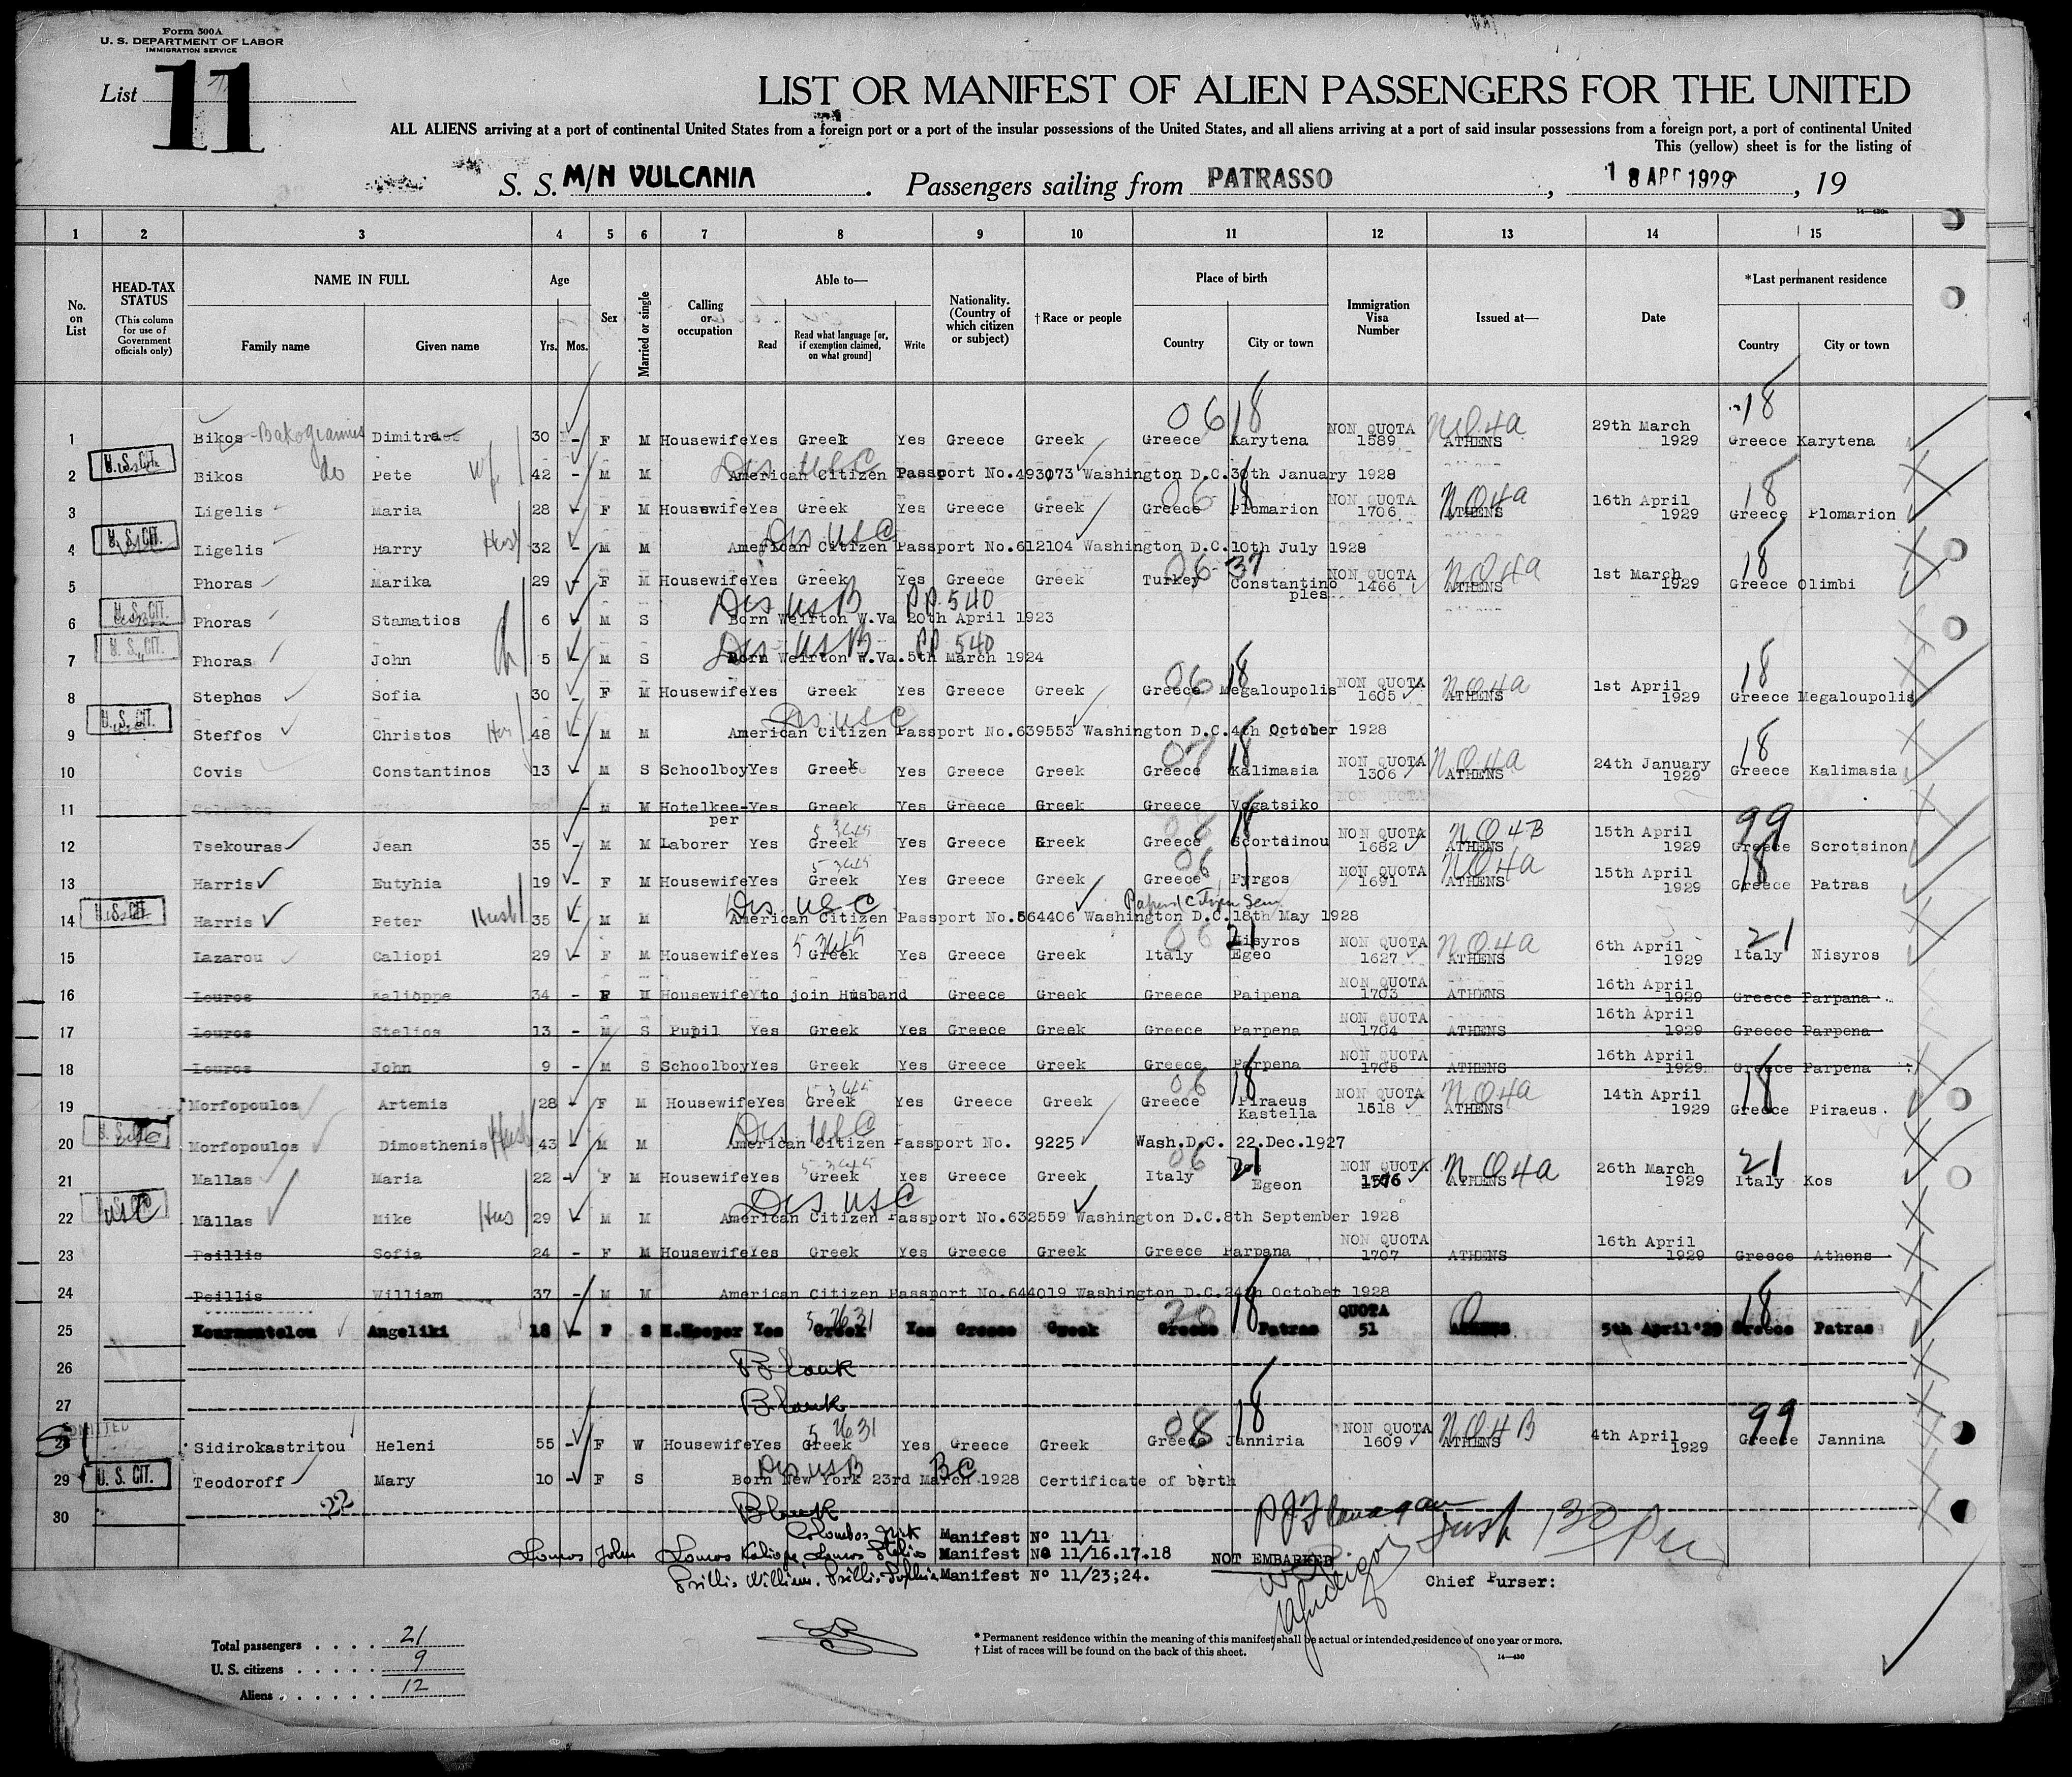 Form 500A
U. S. DEPARTMENT OF LABOR
IMMIGRATION SERVICE
List 11
LIST OR MANIFEST OF ALIEN PASSENGERS FOR THE UNITED
ALL ALIENS arriving at a port of continental United States from a foreign port or a port of the insular possessions of the United States, and all aliens arriving at a port of said insular possessions from a foreign port, a port of continental United
This (yellow) sheet is for the listing of
S. S. M/N VULCANIA. Passengers sailing from PATRASSO, 18 APR 1929, 19
1 2 3 4 5 6 7 8 9 10 11 12 13 14 15
No. on List
HEAD-TAX STATUS (This column for use of Government officials only)
NAME IN FULL Family name Given name
Age Yrs. Mos.
Sex
Married or single
Calling or occupation
Able to— Read Read what language [or, if exemption claimed, on what ground] Write
Nationality. (Country of which citizen or subject)
†Race or people
Place of birth Country City or town
Immigration Visa Number
Issued at—
Date
*Last permanent residence Country City or town
1 Bikos - Bakogiannis Dimitra 30 - F M Housewife Yes Greek Yes Greece Greek 06 18 Greece Karytena NON QUOTA 1589 N.Q.4a ATHENS 29th March 1929 18 Greece Karytena
2 U. S. CIT. Bikos do Pete 42 - M M Dis USC American Citizen Passport No.493073 Washington D.C.30th January 1928
3 Ligelis Maria 28 - F M Housewife Yes Greek Yes Greece Greek 06 18 Greece Plomarion NON QUOTA 1706 N.Q.4a ATHENS 16th April 1929 18 Greece Plomarion
4 U. S. CIT. Ligelis Harry Hus 32 - M M Dis USC American Citizen Passport No.612104 Washington D.C.10th July 1928
5 Phoras Marika 29 - F M Housewife Yes Greek Yes Greece Greek 06 37 Turkey Constantinoples NON QUOTA 1466 N.Q.4a ATHENS 1st March 1929 18 Greece Olimbi
6 U. S. CIT. Phoras Stamatios 6 M S Dis USB PP 540 Born Weirton W.Va 20th April 1923
7 U. S. CIT. Phoras John 5 - M S Dis USB PP 540 Born Weirton W.Va.5th March 1924
8 Stephos Sofia 30 - F M Housewife Yes Greek Yes Greece Greek 06 18 Greece Megaloupolis NON QUOTA 1605 N.Q.4a ATHENS 1st April 1929 18 Greece Megaloupolis
9 U. S. CIT. Steffos Christos Hus 48 - M M Dis USC American Citizen Passport No.639553 Washington D.C.4th October 1928
10 Covis Constantinos 13 - M S Schoolboy Yes Greek Yes Greece Greek 07 18 Greece Kalimasia NON QUOTA 1306 N.Q.4a ATHENS 24th January 1929 18 Greece Kalimasia
11 M M Hotelkee-per Yes Greek Yes Greece Greek Greece Vogatsiko NON QUOTA
12 Tsekouras Jean 35 - M M Laborer Yes 5 3645 Greek Yes Greece Greek 18 Greece Scortsinou NON QUOTA 1682 N.Q.4B ATHENS 15th April 1929 99 Greece Scrotsinon
13 Harris Eutyhia 19 - F M Housewife Yes 5 3645 Greek Yes Greece Greek 06 Greece Pyrgos NON QUOTA 1691 N.Q.4a ATHENS 15th April 1929 18 Greece Patras
14 U. S. CIT. Harris Peter Husb 35 - M M Dis USC American Citizen Passport No.564406 Washington D.C.18th May 1928
15 Lazarou Caliopi 29 - F M Housewife Yes 5 3645 Greek Yes Greece Greek 06 21 Italy Nisyros Egeo NON QUOTA 1627 N.Q.4a ATHENS 6th April 1929 21 Italy Nisyros
16 Louros Kalioppe 34 - F M Housewife to join Husband Greece Greek Greece Paipena NON QUOTA 1703 ATHENS 16th April 1929 Greece Parpana
17 Louros Stelios 13 - M S Pupil Yes Greek Yes Greece Greek Greece Parpena NON QUOTA 1704 ATHENS 16th April 1929 Greece Parpena
18 Louros John 9 - M S Schoolboy Yes Greek Yes Greece Greek Greece Parpena NON QUOTA 1705 ATHENS 16th April 1929 Greece Parpena
19 Morfopoulos Artemis 28 - F M Housewife Yes 5 3645 Greek Yes Greece Greek 06 18 Greece Piraeus Kastella NON QUOTA 1518 N.Q.4a ATHENS 14th April 1929 18 Greece Piraeus.
20 Morfopoulos Dimosthenis Husb 43 - M M Dis USC American Citizen Passport No. 9225 Wash.D.C. 22.Dec.1927
21 Mallas Maria 22 - F M Housewife Yes 5 3645 Greek Yes Greece Greek 06 21 Italy Cos Egeon NON QUOTA 1576 N.Q.4a ATHENS 26th March 1929 21 Italy Kos
22 USC Mallas Mike Hus 29 - M M Dis USC American Citizen Passport No.632559 Washington D.C.8th September 1928
23 Psillis Sofia 24 - F M Housewife Yes Greek Yes Greece Greek Greece Parpana NON QUOTA 1707 ATHENS 16th April 1929 Greece Athens
24 Psillis William 37 - M M American Citizen Passport No.644019 Washington D.C.24th October 1928
25 Angeliki 18 - F S H.Keeper Yes 5 7631 Greek Yes Greece Greek 20 18 Greece Patras QUOTA 51 Q ATHENS 5th April '29 18 Greece Patras
26 Blank
27 Blank
28 ADMITTED Sidirokastritou Heleni 55 - F W Housewife Yes 5 7631 Greek Yes Greece Greek 08 18 Greece Janniria NON QUOTA 1609 N.Q.4B ATHENS 4th April 1929 99 Greece Jannina
29 U. S. CIT. Teodoroff Mary 10 - F S Dis USB BC Born New York 23rd March 1928 Certificate of birth
30 22 Blank
Colombos Nick Manifest No 11/11
Louros John Louros Kaliope, Louros Stelios Manifest No 11/16.17.18 NOT EMBARKED
Psillis William, Psillis Sophia Manifest No 11/23;24. Chief Purser:
Total passengers . . . . 21
U. S. citizens . . . . . 9
Aliens . . . . . . 12
* Permanent residence within the meaning of this manifest shall be actual or intended residence of one year or more.
† List of races will be found on the back of this sheet.
14—430